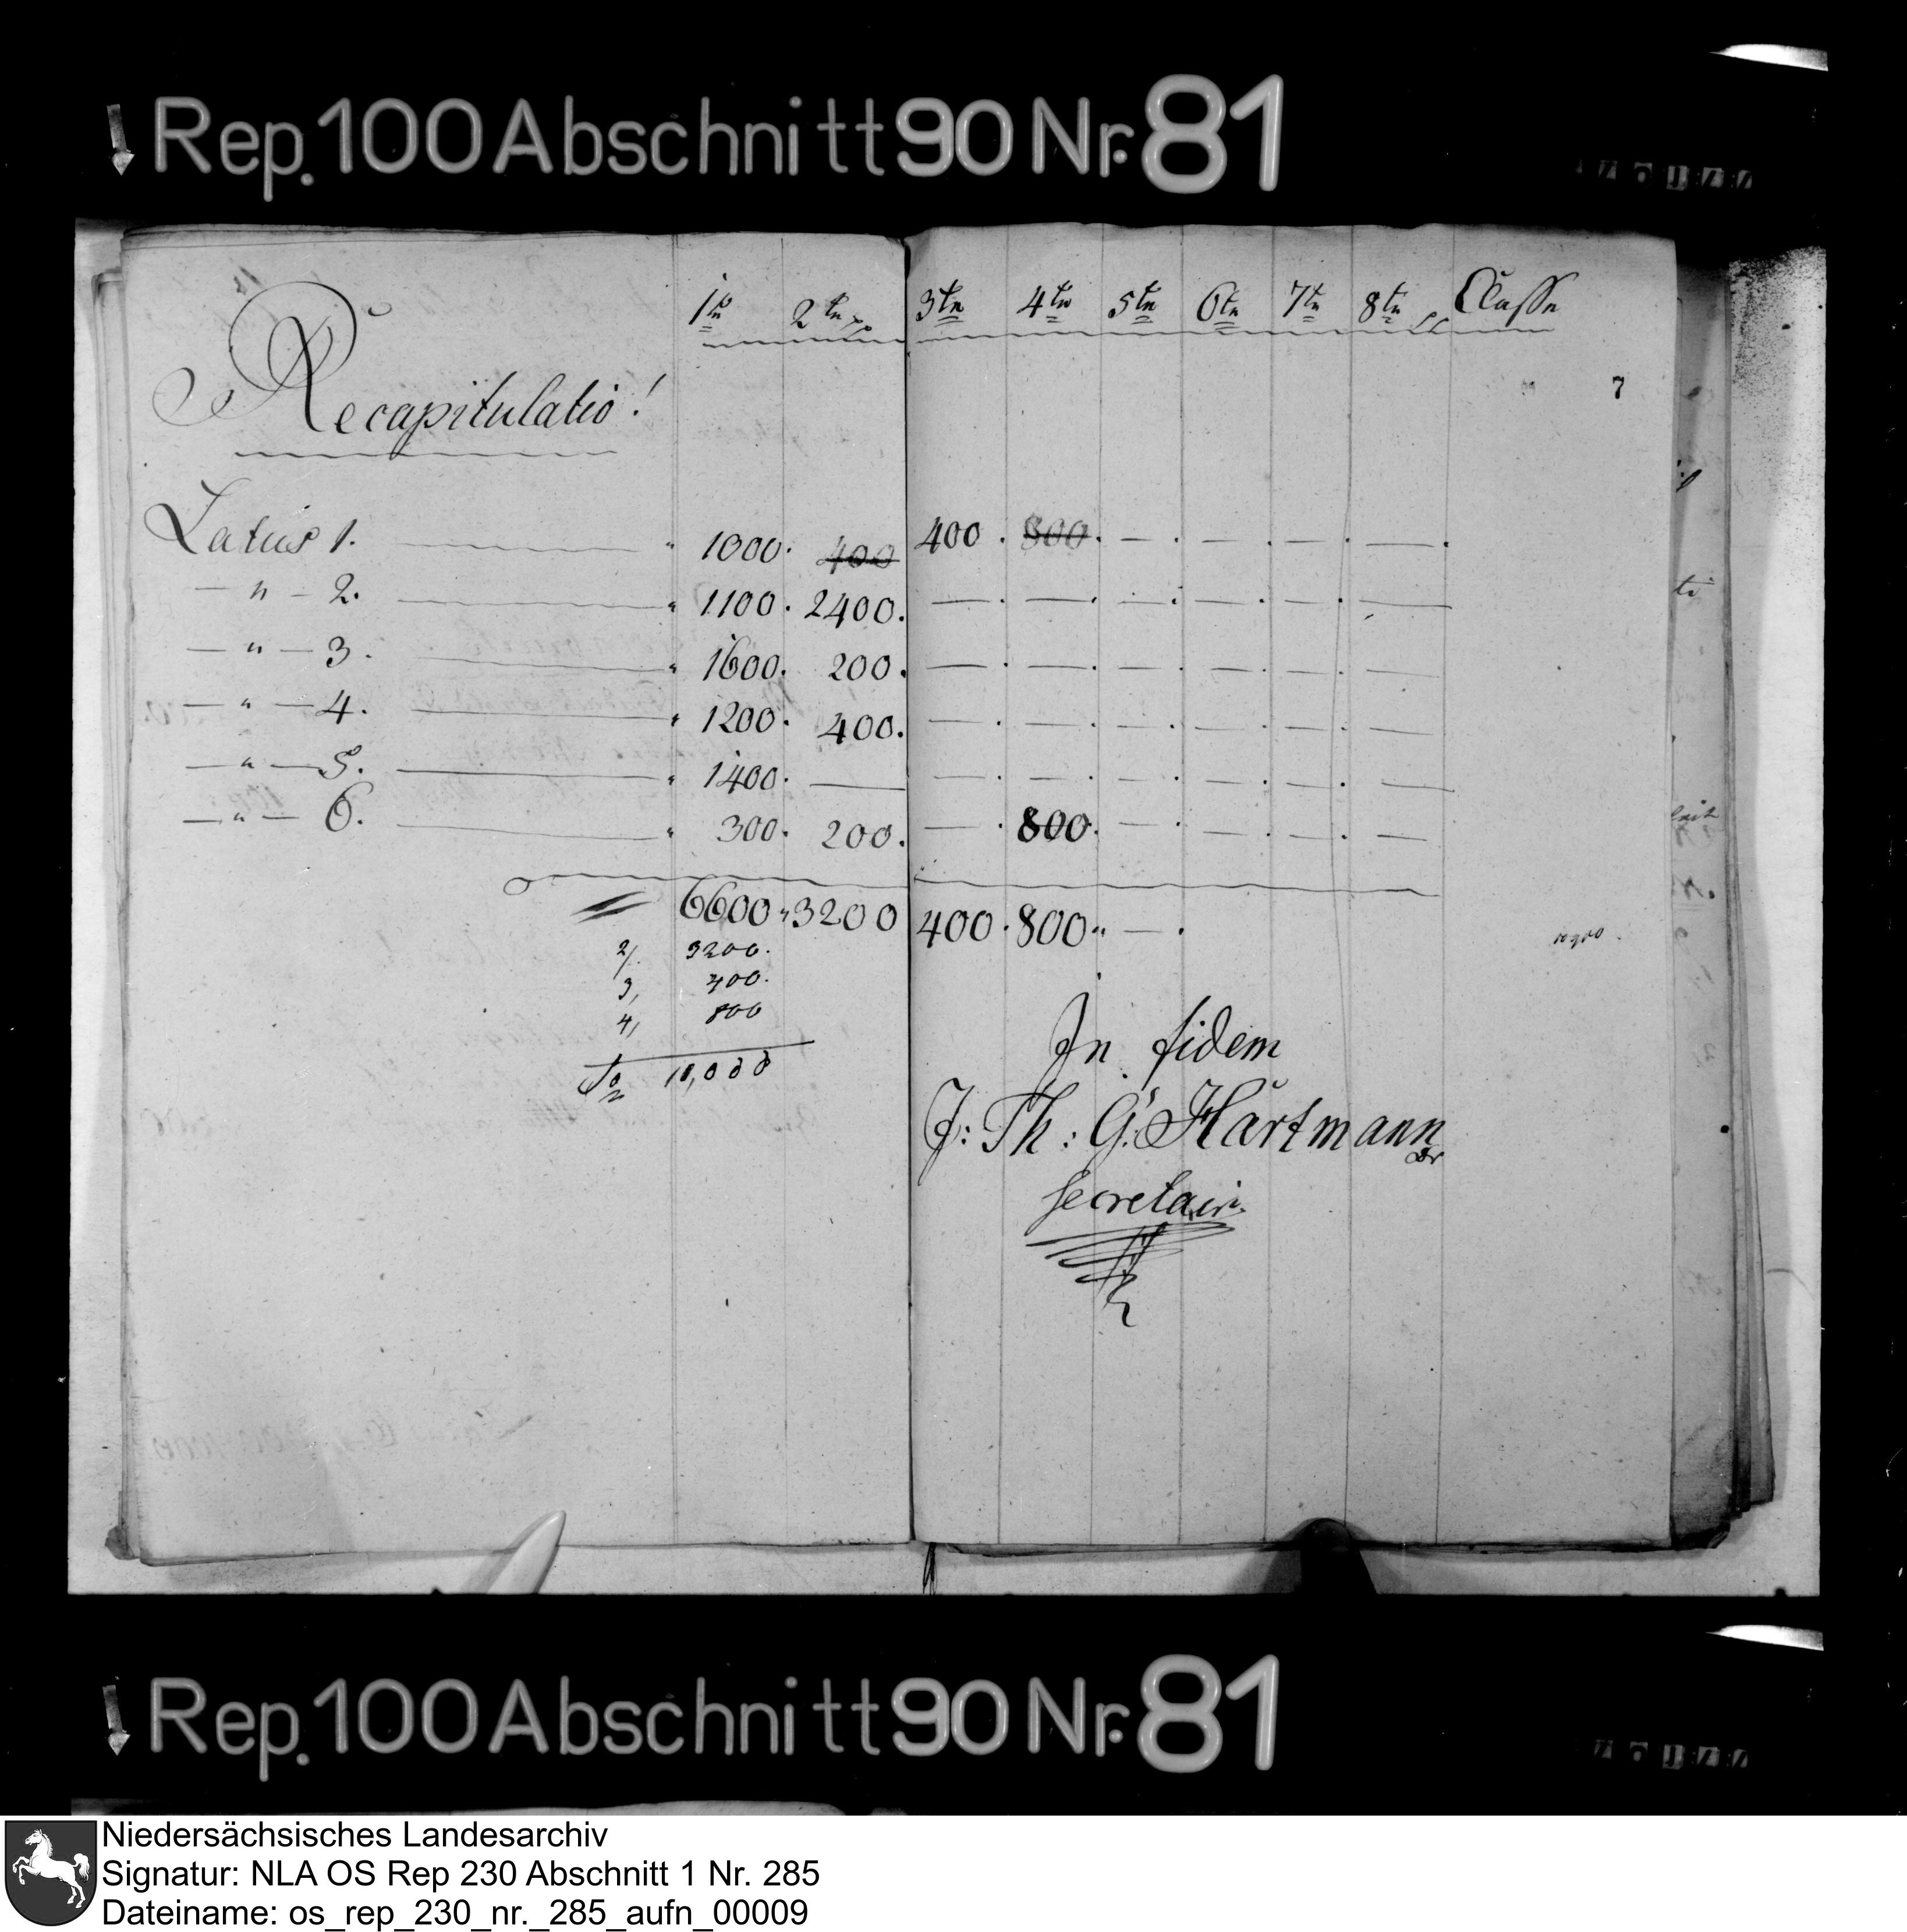 Rep. 100 Abschnitt 90 Nr. 81
1te 2te 3te 4te 5te 6te 7te 8te Classe
7
Recapitulatio!
Latus 1. — " 1000. 400 400. 800. — . — . — . — .
— " — 2. — " 1100. 2400. — . — . — . — . — . —
— " — 3. — " 1600. 200. — . — . — . — . — . —
— " — 4. — " 1200. 400. — . — . — . — . — . —
— " — 5. — " 1400. — — . — . — . — . — . —
— " — 6. — " 300. 200. — . 800. — . — . — . —
6600 " 3200 400. 800 " — .
2/. 3200.
3, 400.
4, 800
11,000
In fidem
J: Th: G: Hartmann Dr
Secretair.
Rep. 100 Abschnitt 90 Nr. 81
Niedersächsisches Landesarchiv
Signatur: NLA OS Rep 230 Abschnitt 1 Nr. 285
Dateiname: os_rep_230_nr._285_aufn_00009